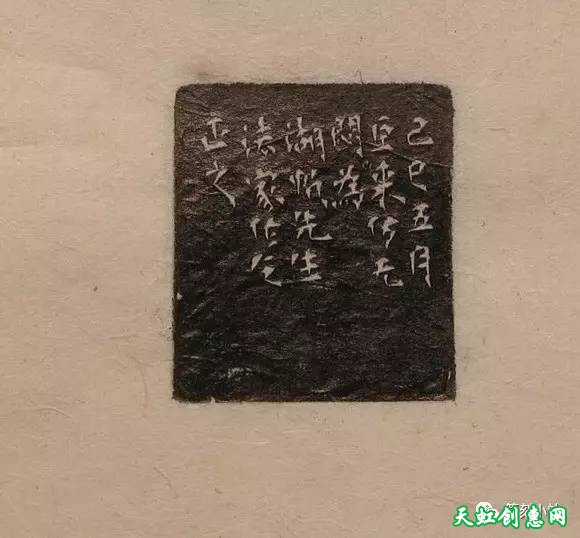 己巳五月
巨来仿元
為
湖帆先生
法家作乞
正之
天虹创意网